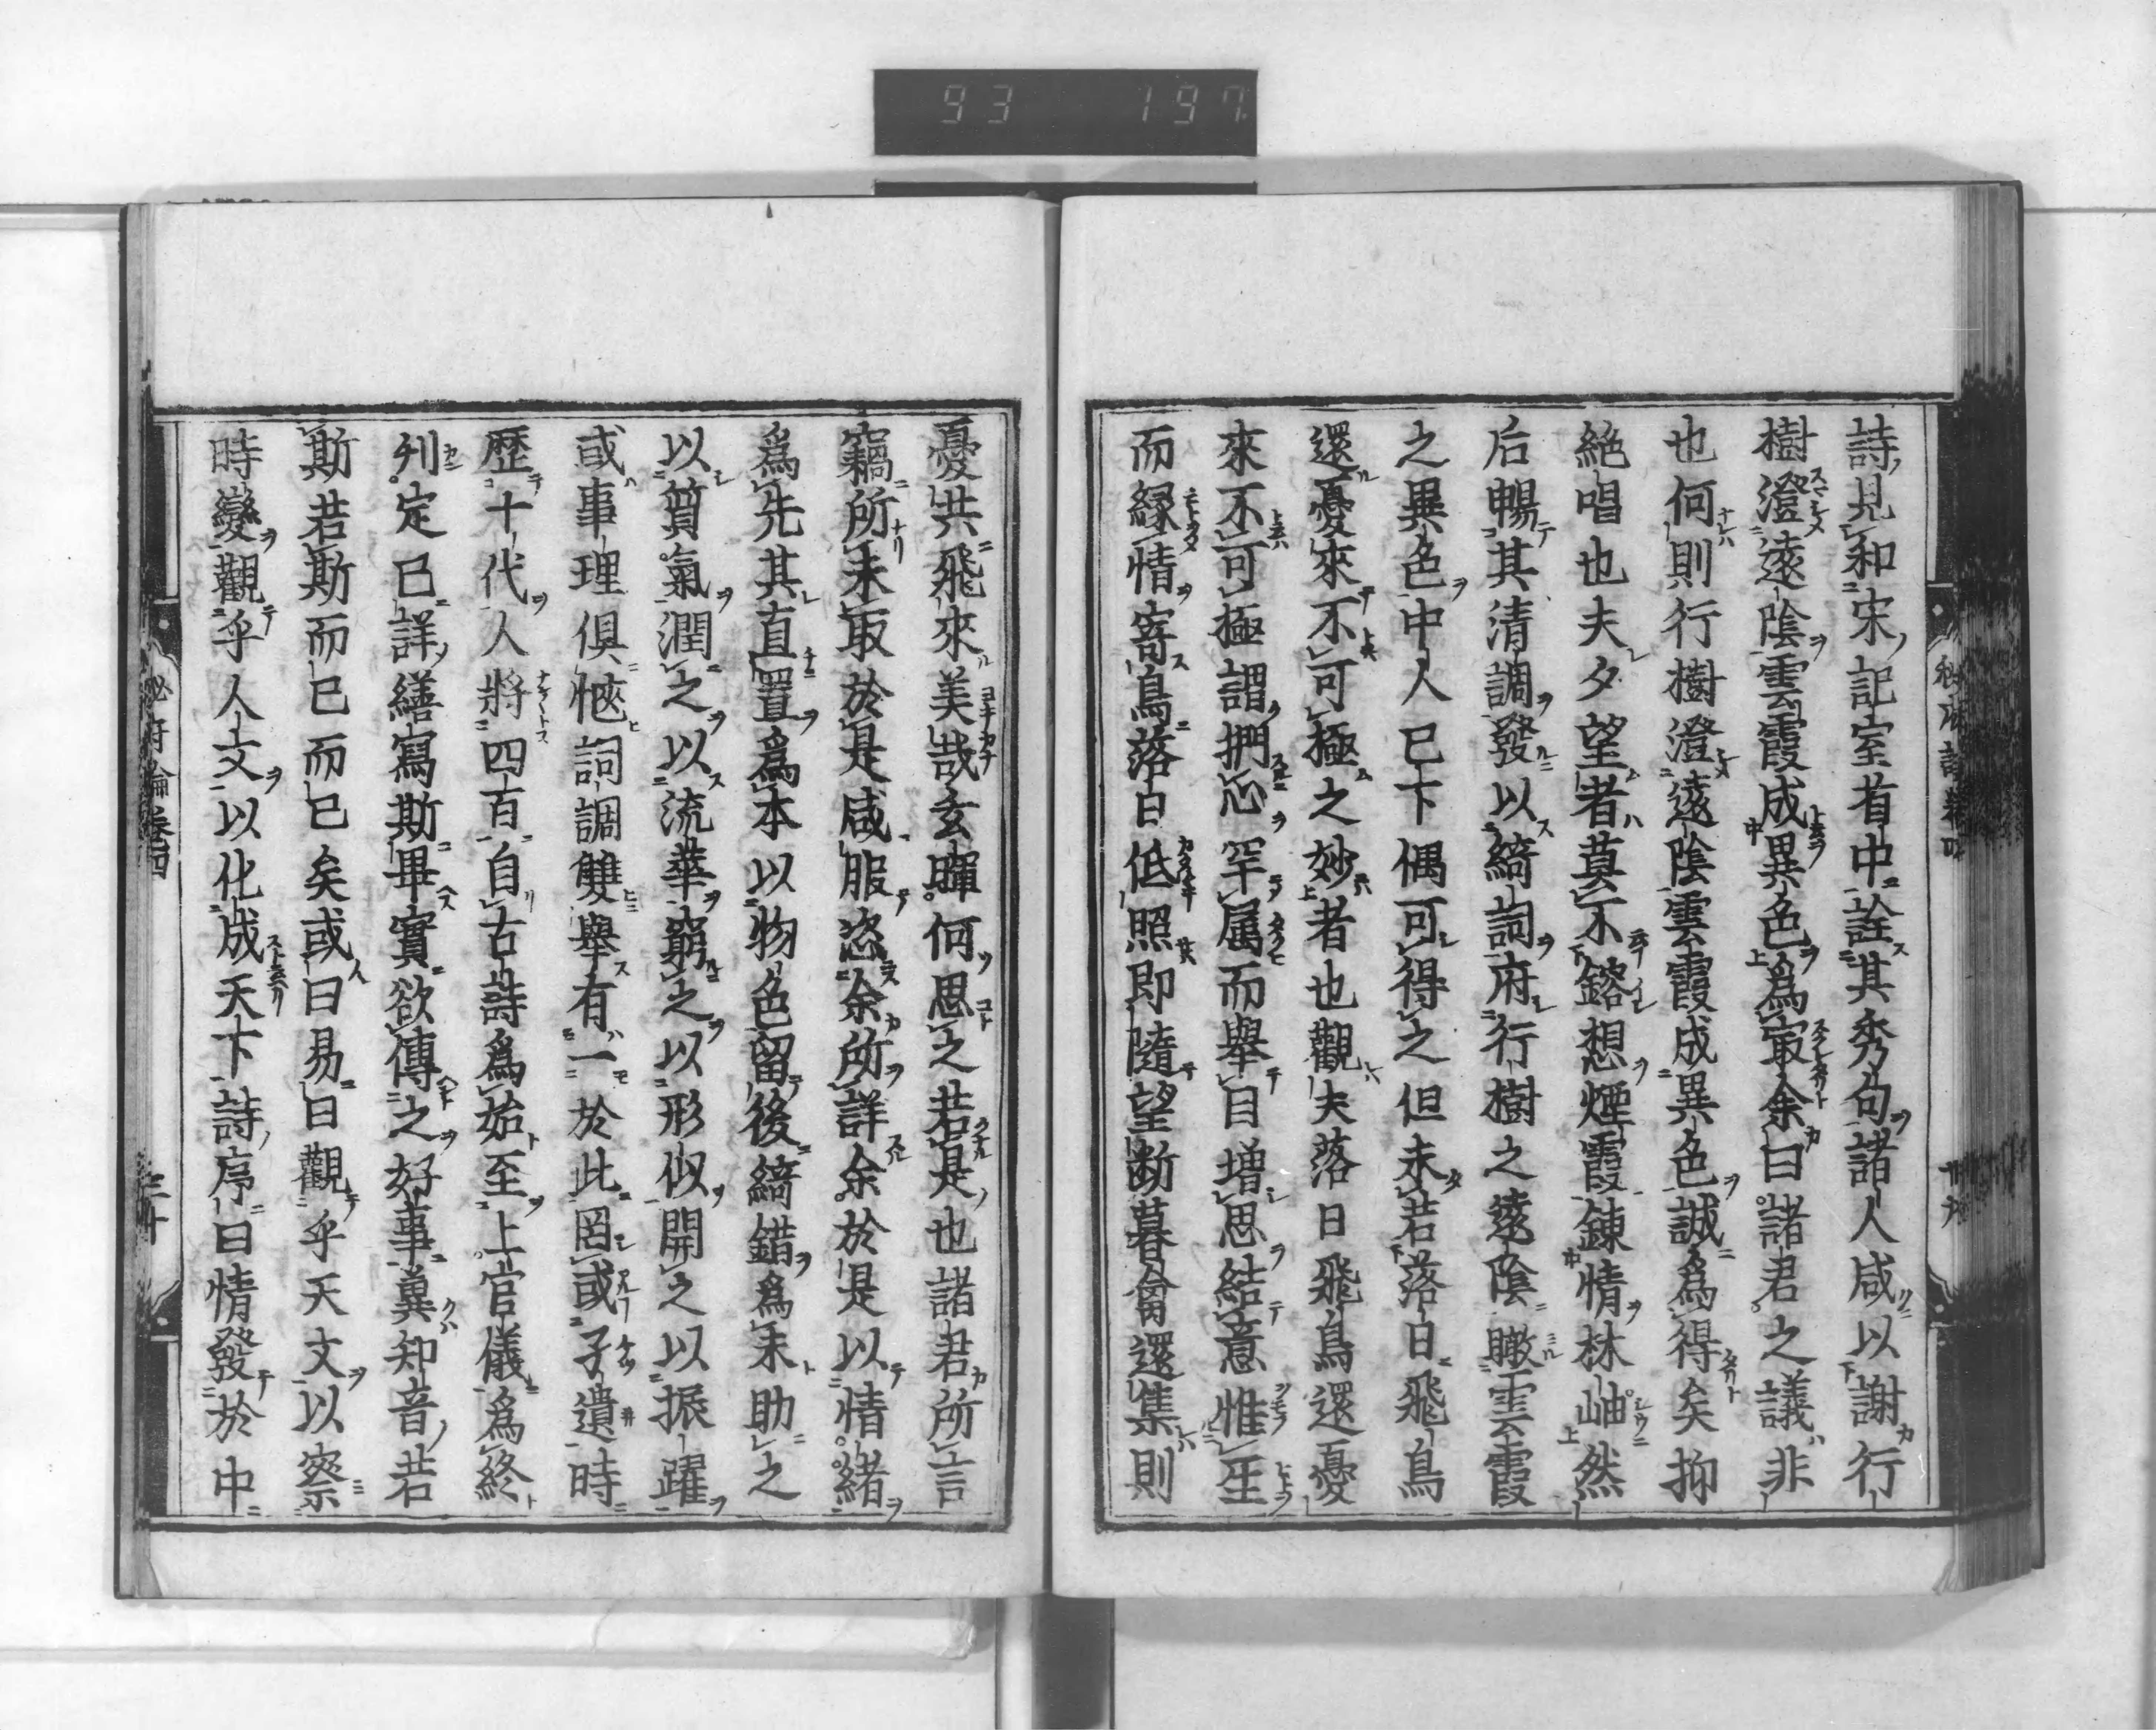 93 197
詩見和宋記室省中詮其秀句諸人咸以謝行
樹澄遠陰雲霞成異色爲最余曰諸君之議非
也何則行樹澄遠陰雲霞成異色誠爲得矣抑
絶唱也夫夕望者莫不鎔想煙霞錬情林岫然
后暢其清調發以綺詞府行樹之遠陰瞰雲霞
之異色中人已下偶可得之但未若落日飛鳥
還憂來不可極之妙者也觀夫落日飛鳥還憂
來不可極謂捫心罕属而舉目增思結意惟生
而縁情寄鳥落日低照即隨望断暮禽還集則
憂共飛來美哉玄暉何思之若是也諸君所言
竊所未取於是咸服恣余所詳余於是以情緒
爲先其直置爲本以物色留後綺錯爲末助之
以質氣潤之以流華窮之以形似開之以振躍
或事理倶愜詞調雙舉有一於此罔或孑遺時
歴十代人將四百自古詩爲始至上官儀爲終
刋定已詳繕寫斯畢實欲傳之好事冀知音若
斯若斯而已而已矣或曰易曰觀乎天文以察
時變觀乎人文以化成天下詩序曰情發於中
秘府論卷四
三十